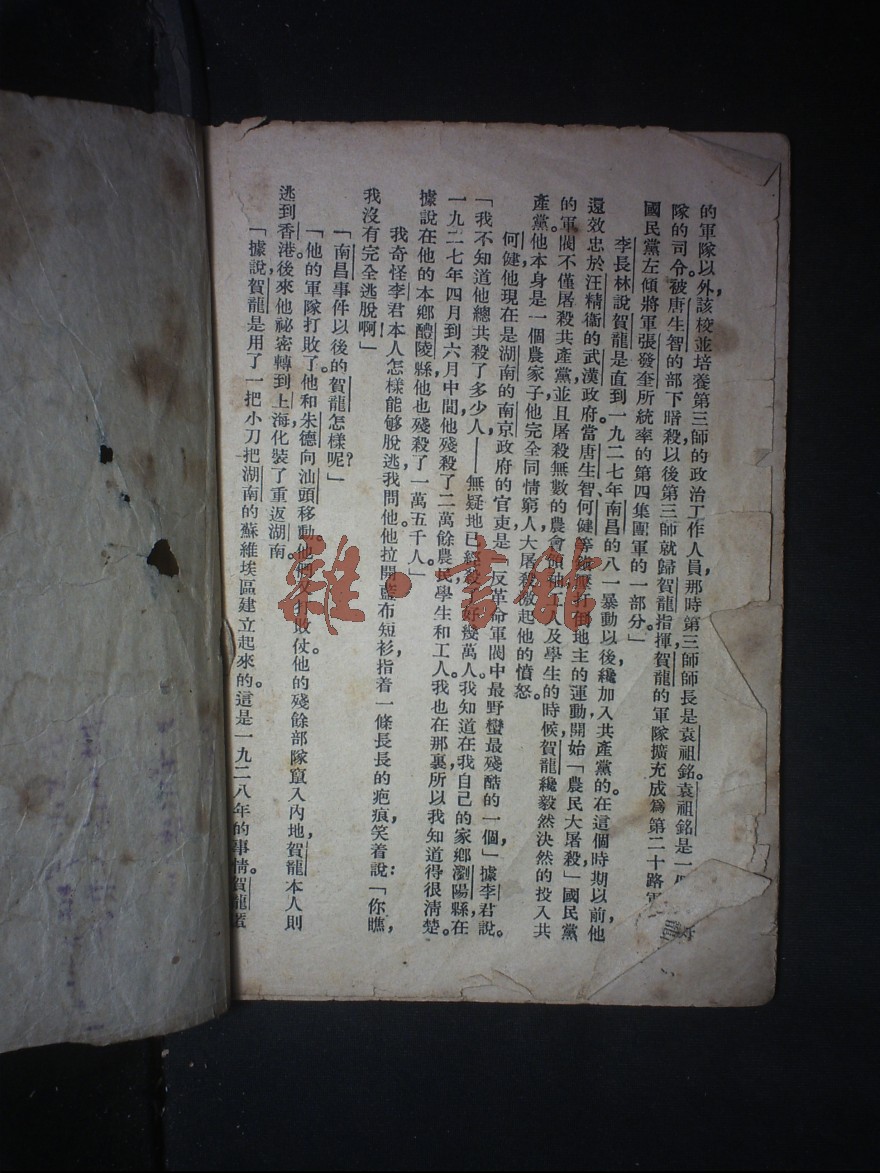 的軍隊以外，該校並培養第三師的政治工作人員，那時第三師師長是袁祖銘。袁祖銘是一
隊的司令。被唐生智的部下暗殺以後，第三師就歸賀龍指揮，賀龍的軍隊擴充成爲第二十路軍
國民黨左傾將軍張發奎所統率的第四集團軍的一部分。」
李長林說賀龍是直到一九二七年南昌的八一暴動以後，纔加入共產黨的。在這個時期以前，他
還效忠於汪精衞的武漢政府。當唐生智、何健等鎮壓打倒地主的運動，開始「農民大屠殺，」國民黨
的軍閥不僅屠殺共產黨，並且屠殺無數的農會領袖、工人及學生的時候，賀龍纔毅然決然的投入共
產黨。他本身是一個農家子，他完全同情窮人，大屠殺激起他的憤怒。
何健，他現在是湖南的南京政府的官吏，是「反革命軍閥中最野蠻最殘酷的一個，」據李君說。
「我不知道他總共殺了多少人——無疑地已經殺了好幾萬人。我知道在我自己的家鄉瀏陽縣，在
一九二七年四月到六月中間，他殘殺了二萬餘農民，學生和工人。我也在那裏，所以我知道得很清楚。
據說在他的本鄉醴陵縣，他也殘殺了一萬五千人。」
我奇怪李君本人怎樣能够脫逃，我問他。他拉開藍布短衫，指着一條長長的疤痕，笑着說：「你瞧，
我沒有完全逃脫啊！」
「南昌事件以後的賀龍怎樣呢？」
「他的軍隊打敗了。他和朱德向汕頭移動。他們又打敗仗。他的殘餘部隊竄入內地，賀龍本人則
逃到香港。後來他祕密轉到上海，化裝了重返湖南。
「據說賀龍是用了一把小刀把湖南的蘇維埃區建立起來的。這是一九二八年的事情。賀龍匿
雜·書館